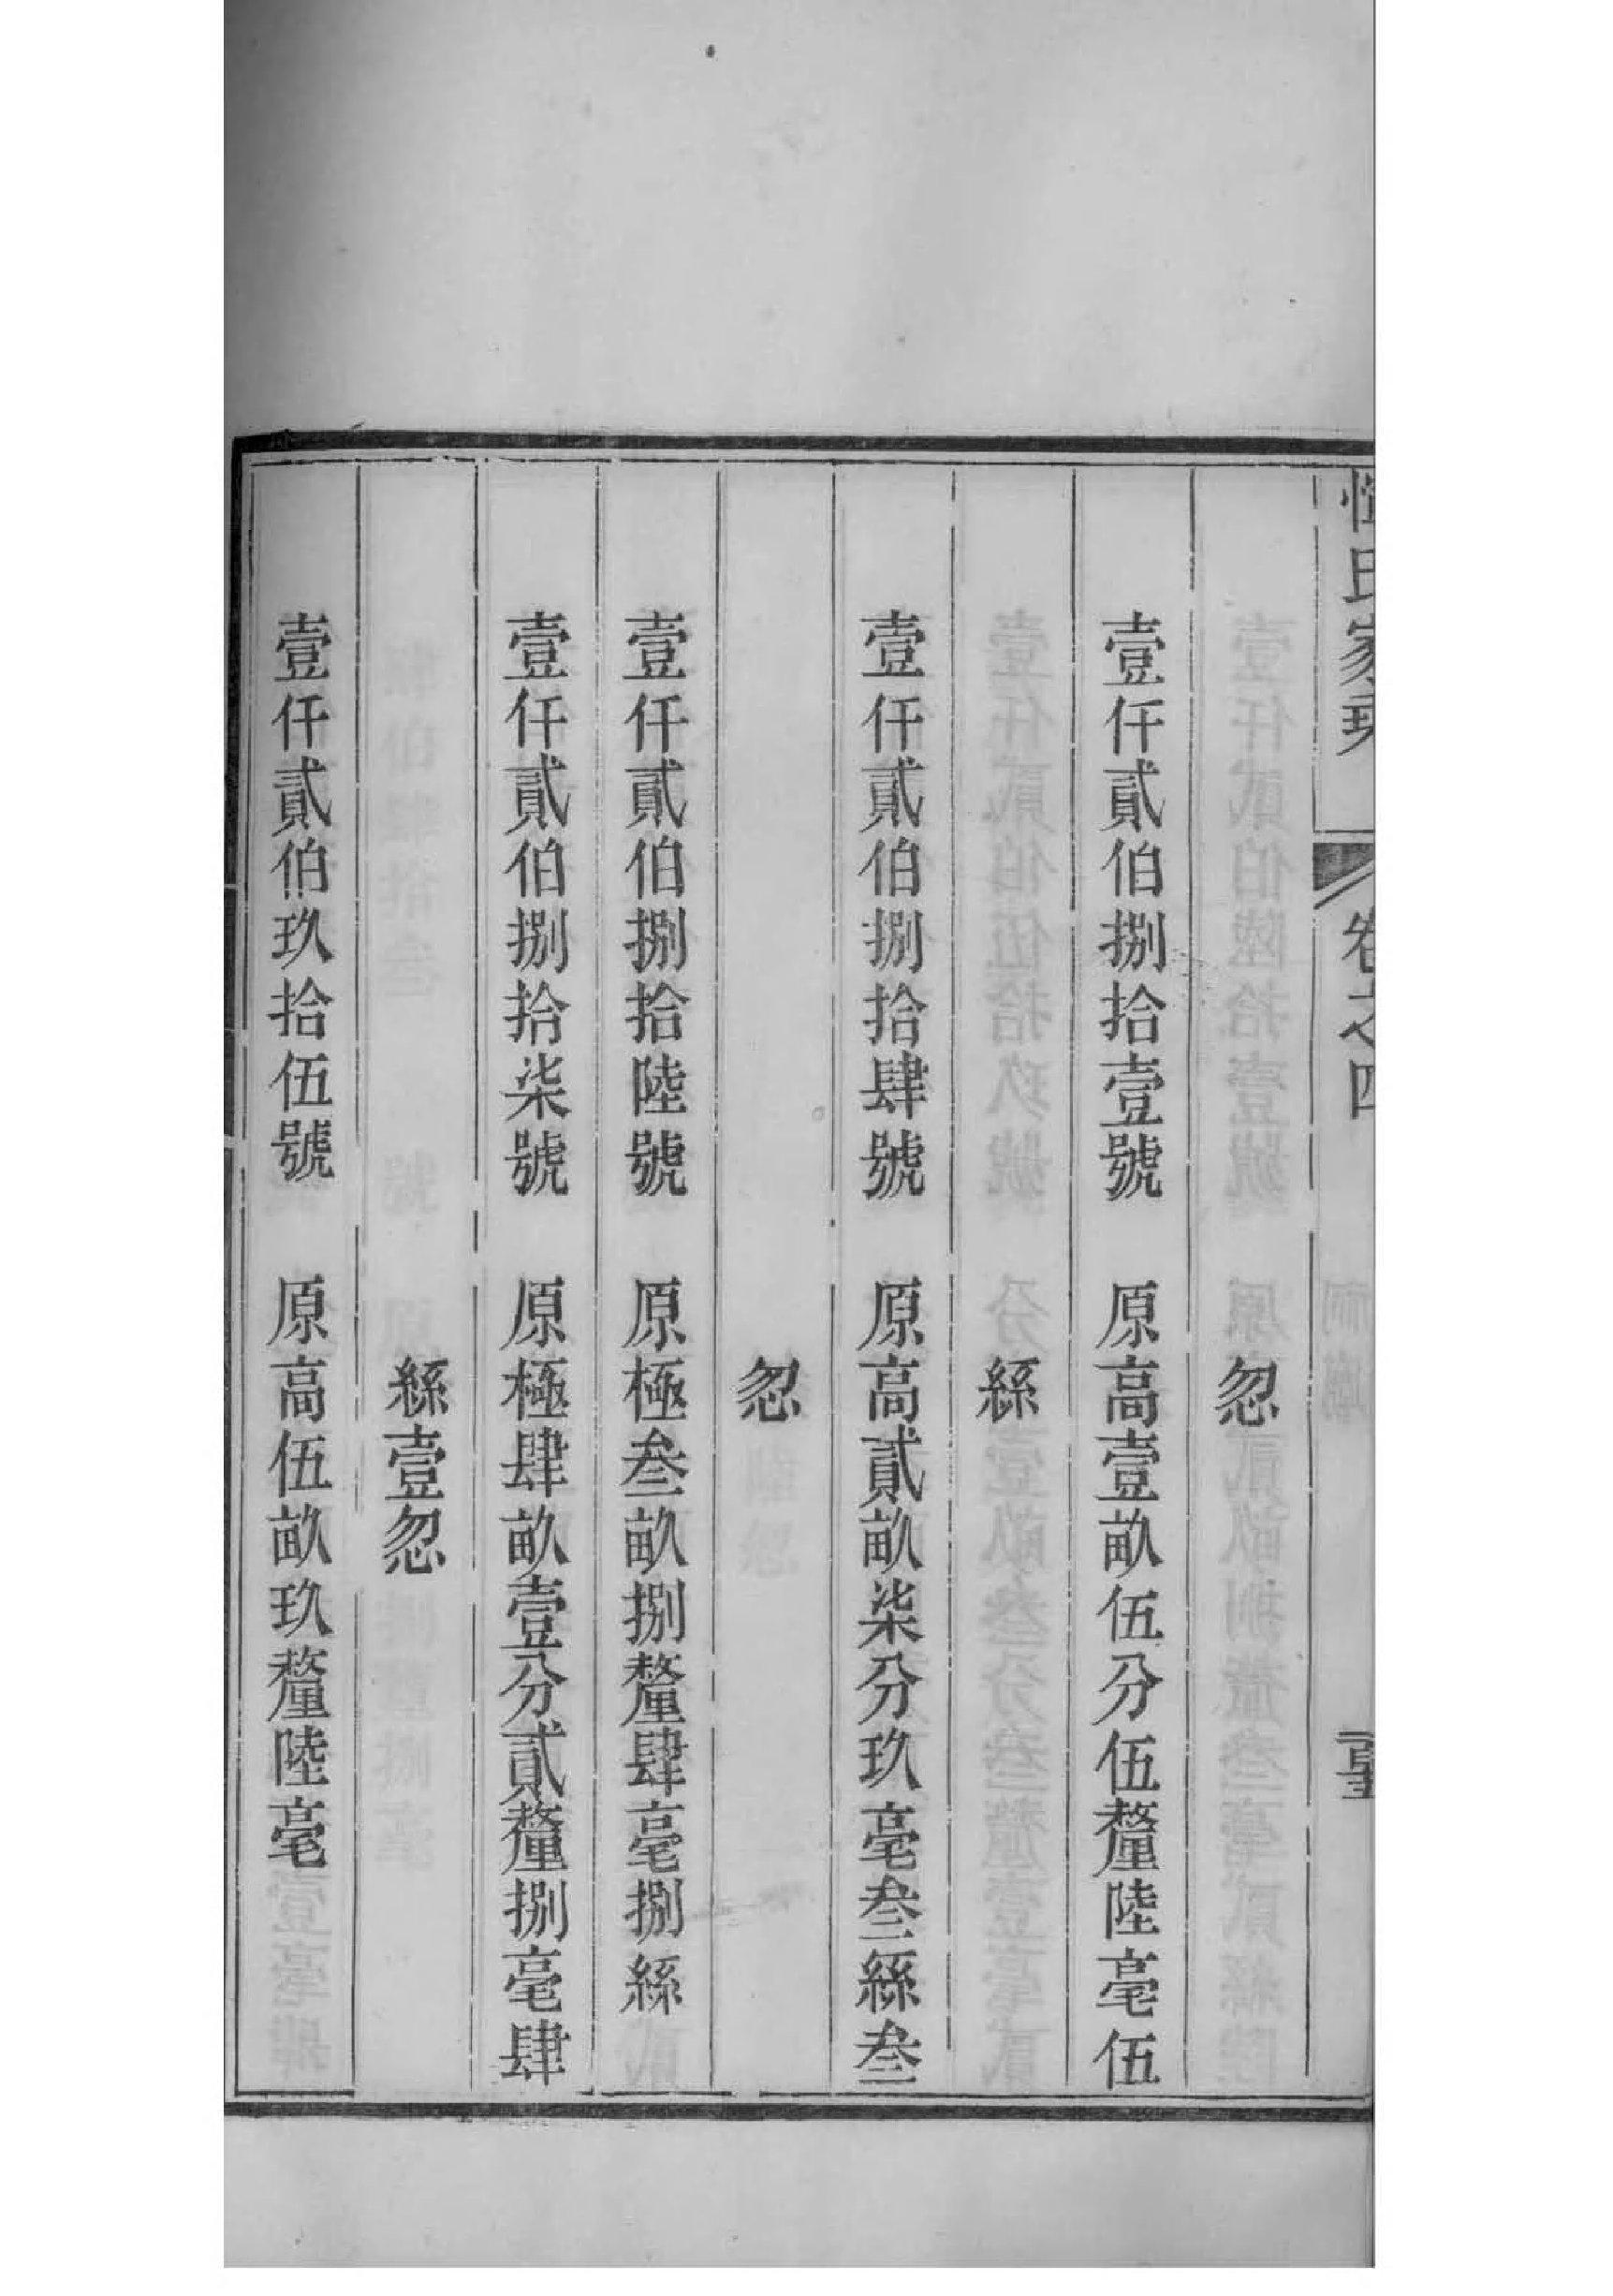 氏家乘 卷之四
忽
壹仟貳伯捌拾壹號 原高壹畝伍分伍釐陸毫伍
絲
壹仟貳伯捌拾肆號 原高貳畝柒分玖毫叁絲叁
忽
壹仟貳伯捌拾陸號 原極叁畝捌釐肆毫捌絲
壹仟貳伯捌拾柒號 原極肆畝壹分貳釐捌毫肆
絲壹忽
壹仟貳伯玖拾伍號 原高伍畝玖釐陸毫